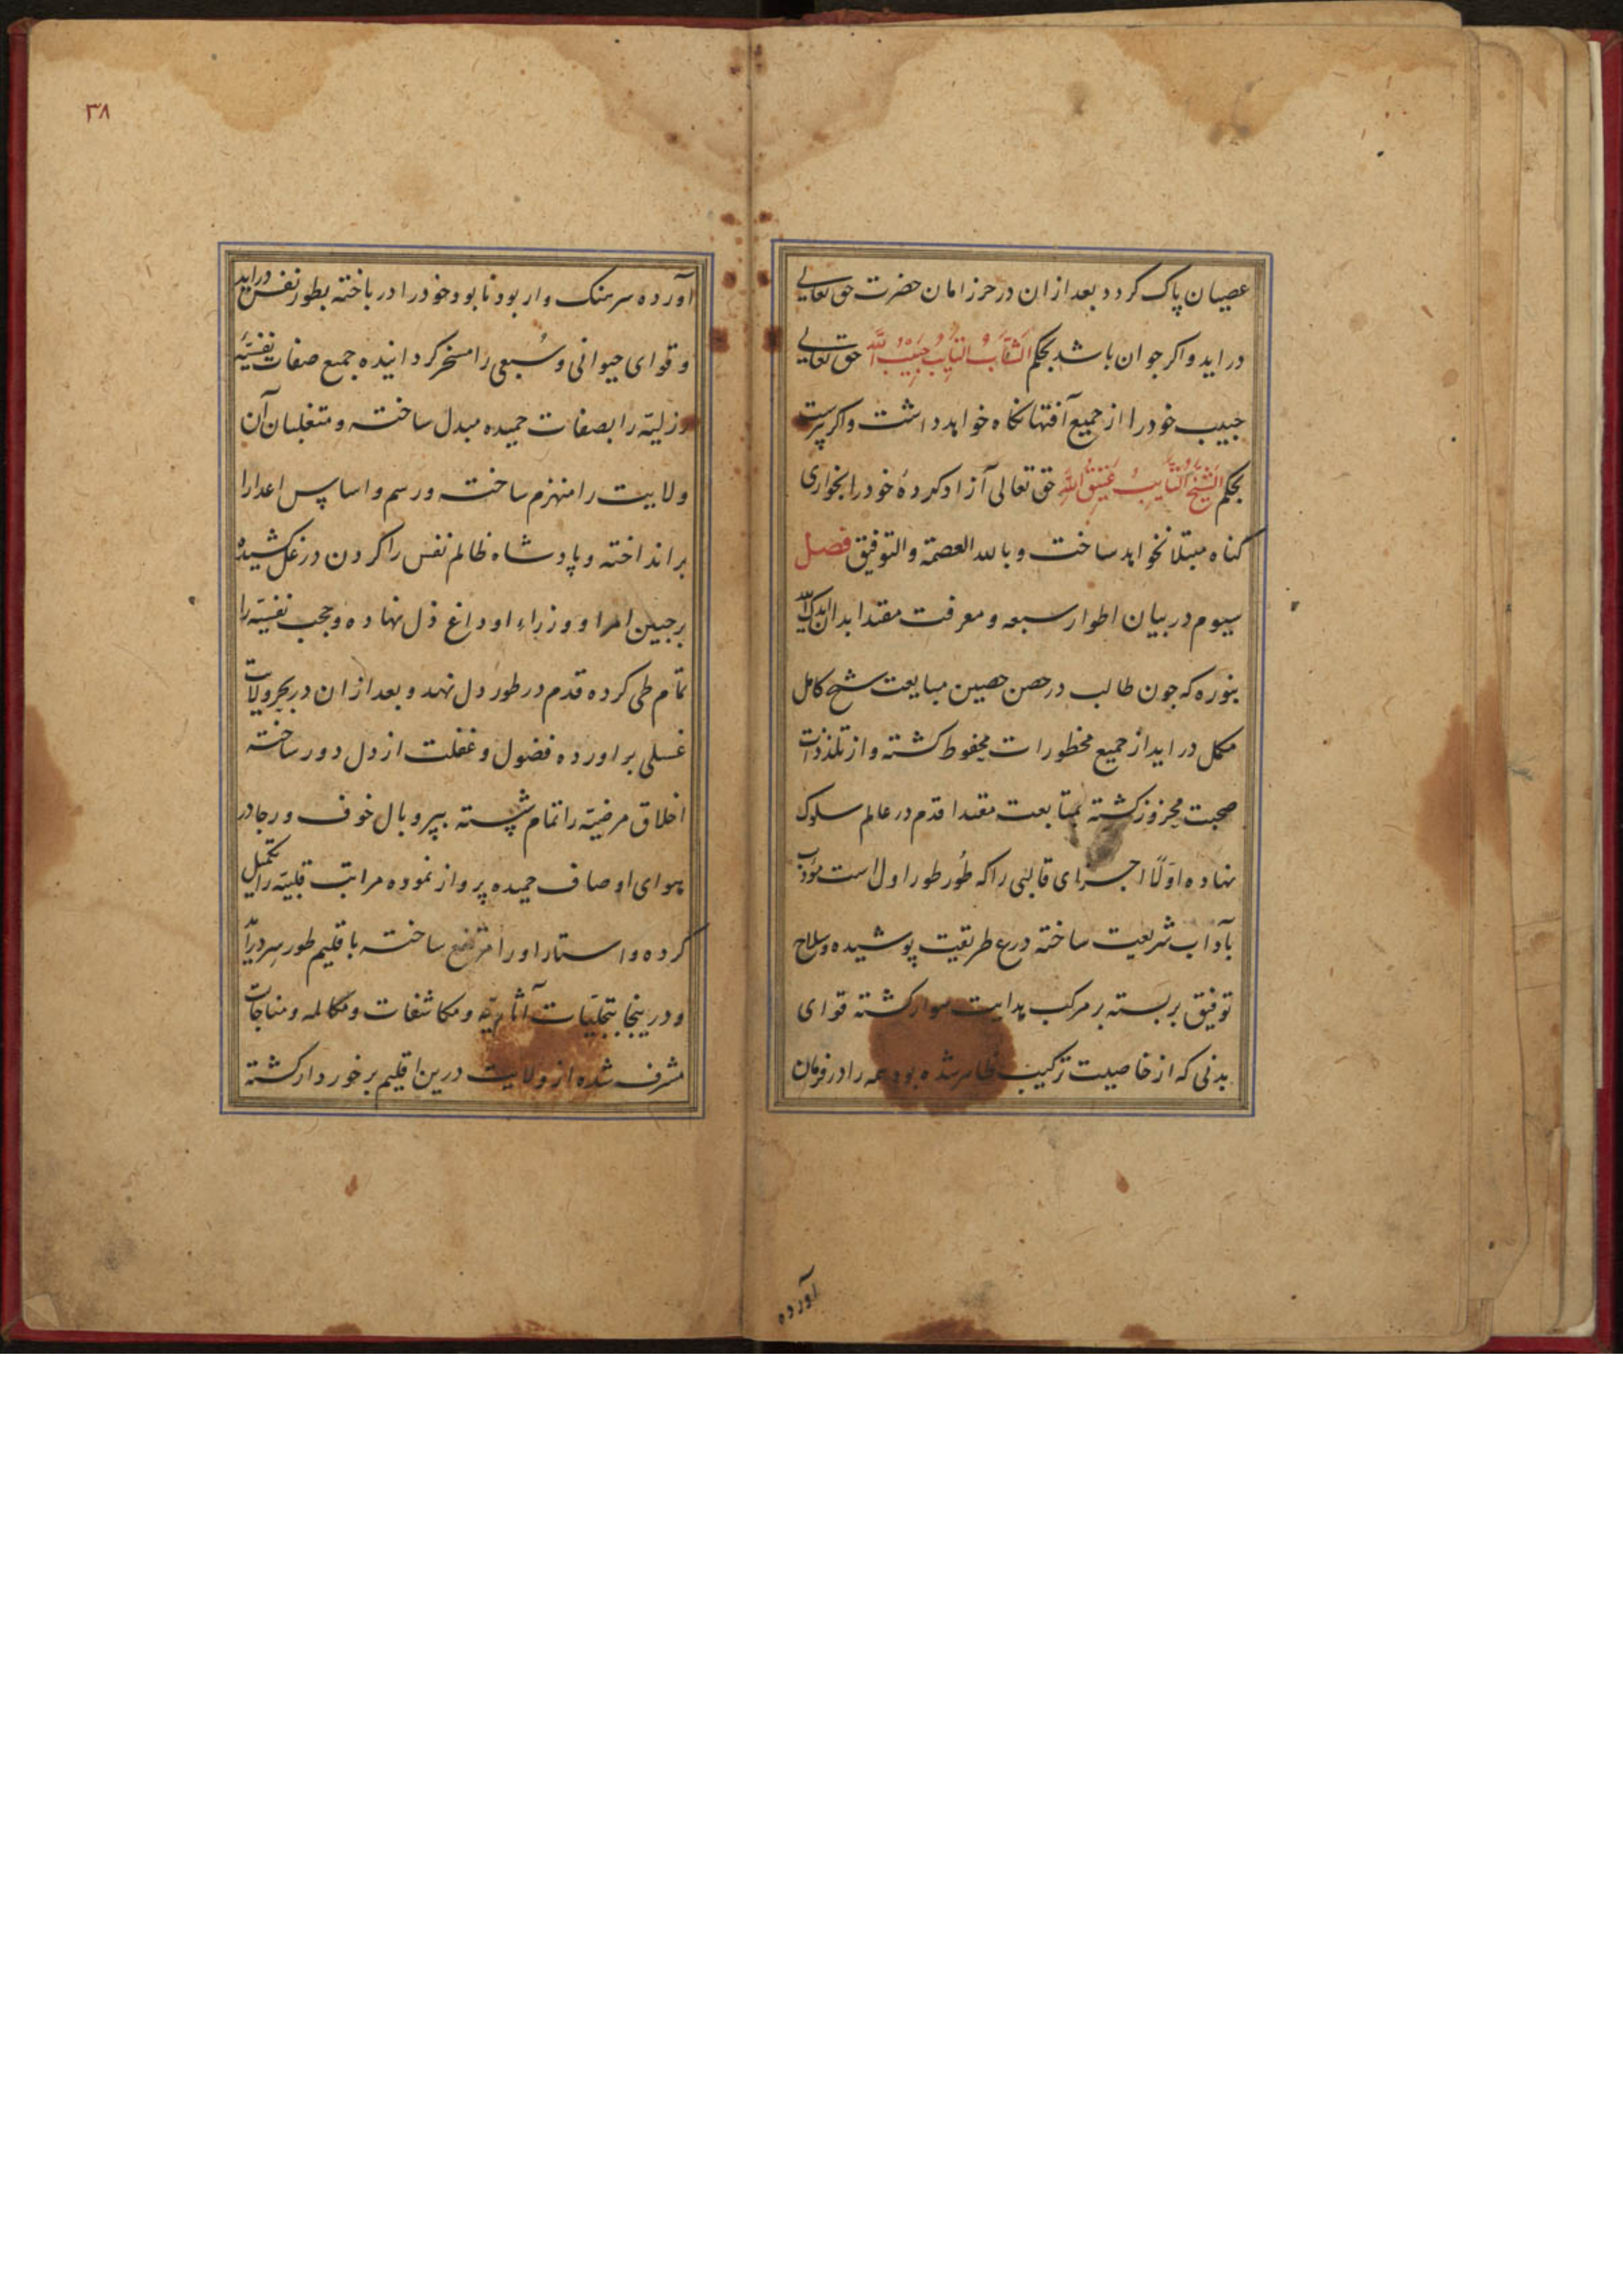 عصیان پاک کردد بعد ازان در حرز امان حضرت حق تعالی
در اید و اکر جوان باشد بحکم اَلشَّابُ التَایِبُ حَبِیْبُ اللّه حق تعالی
حبیب خود را از جمیع آفتها نکاه خواهد داشت و اکر پیرست
بحکم اَلشَّیْخُ التَّایِبُ عَتِیْقُ اللّهِ حق تعالی آزاد کردهٔ خود را بخواری
کناه مبتلا نخواهد ساخت و بالله العصمة والتوفیق فصل
سیوم در بیان اطوار سبعه و معرفت مقتدا بدان ایدک الله
بنوره که جون طالب در حصن حصین مبایعت شیخ کامل
مکمل در اید از جمیع مخطورات محفوظ کشته و از تلذذات
صحبت محزوز کشته بمتابعت مقتدا قدم در عالم سلوک
نهاده اوّلًا اجزای قالبی را که طُور طور اول است مؤدب
بآداب شریعت ساخته درع طریقت پوشیده و سلاح
توفیق بر بسته بر مرکب هدایت سوار کشته قوای
بدنی که از خاصیت ترکیب ظاهر شده بود همه را در فرمان
آورده
٣٨
آورده سرهنک وار بود نابود خود را در باخته بطور نفس دراید
و قوای حیوانی و سُبعی را مسخر کردانیده جمیع صفات نفسیّه
رزلیّه را بصفات حمیده مبدل ساخته و متغلبان آن
ولایت را منهزم ساخته و رسم و اساس اعدا را
بر انداخته و پادشاه ظالم نفس را کردن در غل کشیده
بر جبین امرا و وزراء او داغ ذل نهاده و حجب نفسیّه را
تمام طی کرده قدم در طور دل نهد و بعد ازان در بحر ولایت
غسلی براورده فضول و غفلت از دل دور ساخته
اخلاق مرضیّه را تمام شسته بپر و بال خوف و رجا در
هوای اوصاف حمیده پرواز نموده مراتب قلبیّه را تکمیل
کرده و استار او را مرتفع ساخته باقلیم طور سر درآید
و درینجا بتجلیّات آثاریّه و مکاشفات و مکالمه و مناجات
مشرف شده از ولایت درین اقلیم برخوردار کشته